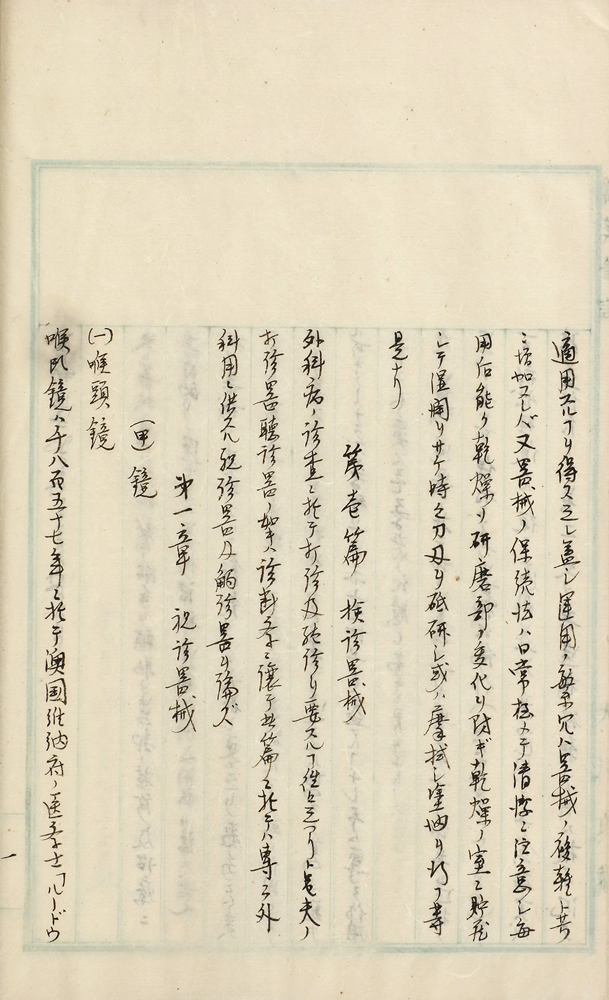 適用スルヿヲ得ス之レ蓋シ運用ノ敏柔冗ハ器械ノ複雑ト共
ニ増加スレバ又器械ノ保続法ハ日常極メテ清潔ニ注意シ毎
用后能ク乾燥シ研磨部ノ変化ヲ防ギ乾燥ノ室ニ貯蔵
シテ湿潤ヲサケ時々刀刃ヲ砥研シ或ハ摩拭シ塗油ヲ行フ等
是ナリ
第壱篇 検診器械
外科病ノ診査ニ於テ打診及聴診ヲ要スルヿ往々之アリト雖夫ノ
打診器聴診器ノ如キハ診断学ニ譲リ此篇ニ於テハ専ラ外
科用ニ供スル視診器及觸診器ヲ論ズ
第一章 視診器械
(甲) 鏡
(一) 喉頭鏡
喉頭鏡ハ千八百五十七年ニ於テ澳国維納府ノ医学士「ルードウ